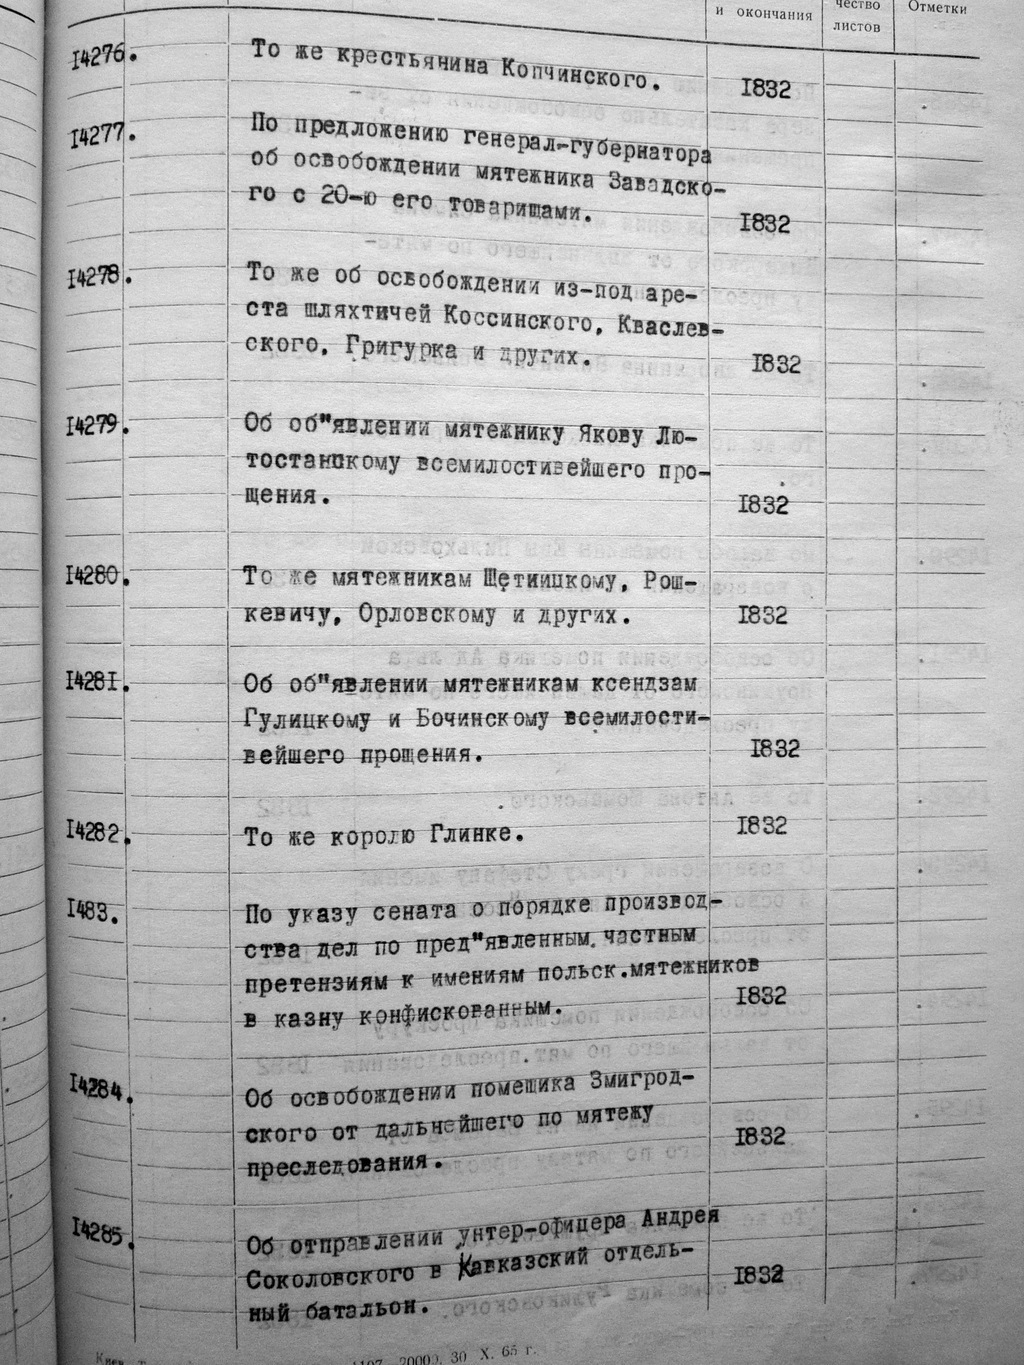 и окончания
чество
листов
Отметки
14276.
То же крестьянина Копчинского.
1832
14277.
По предложению генерал-губернатора
об освобождении мятежника Завадско-
го с 20-ю его товарищами.
1832
14278.
То же об освобождении из-под аре-
ста шляхтичей Коссинского, Кваслев-
ского, Григурка и других.
1832
14279.
Об об"явлении мятежнику Якову Лю-
тостанскому всемилостивейшего про-
щения.
1832
14280.
То же мятежникам Щетницкому, Рош-
кевичу, Орловскому и других.
1832
14281.
Об об"явлении мятежникам ксендзам
Гулицкому и Бочинскому всемилости-
вейшего прощения.
1832
14282.
То же королю Глинке.
1832
1483.
По указу сената о порядке производ-
ства дел по пред"явленным частным
претензиям к имениям польск.мятежников
в казну конфискованным.
1832
14284.
Об освобождении помешика Змигрод-
ского от дальнейшего по мятежу
преследования.
1832
14285.
Об отправлении унтер-офицера Андрея
Соколовского в Кавказский отдель-
ный батальон.
1832
30 X. 65 г.